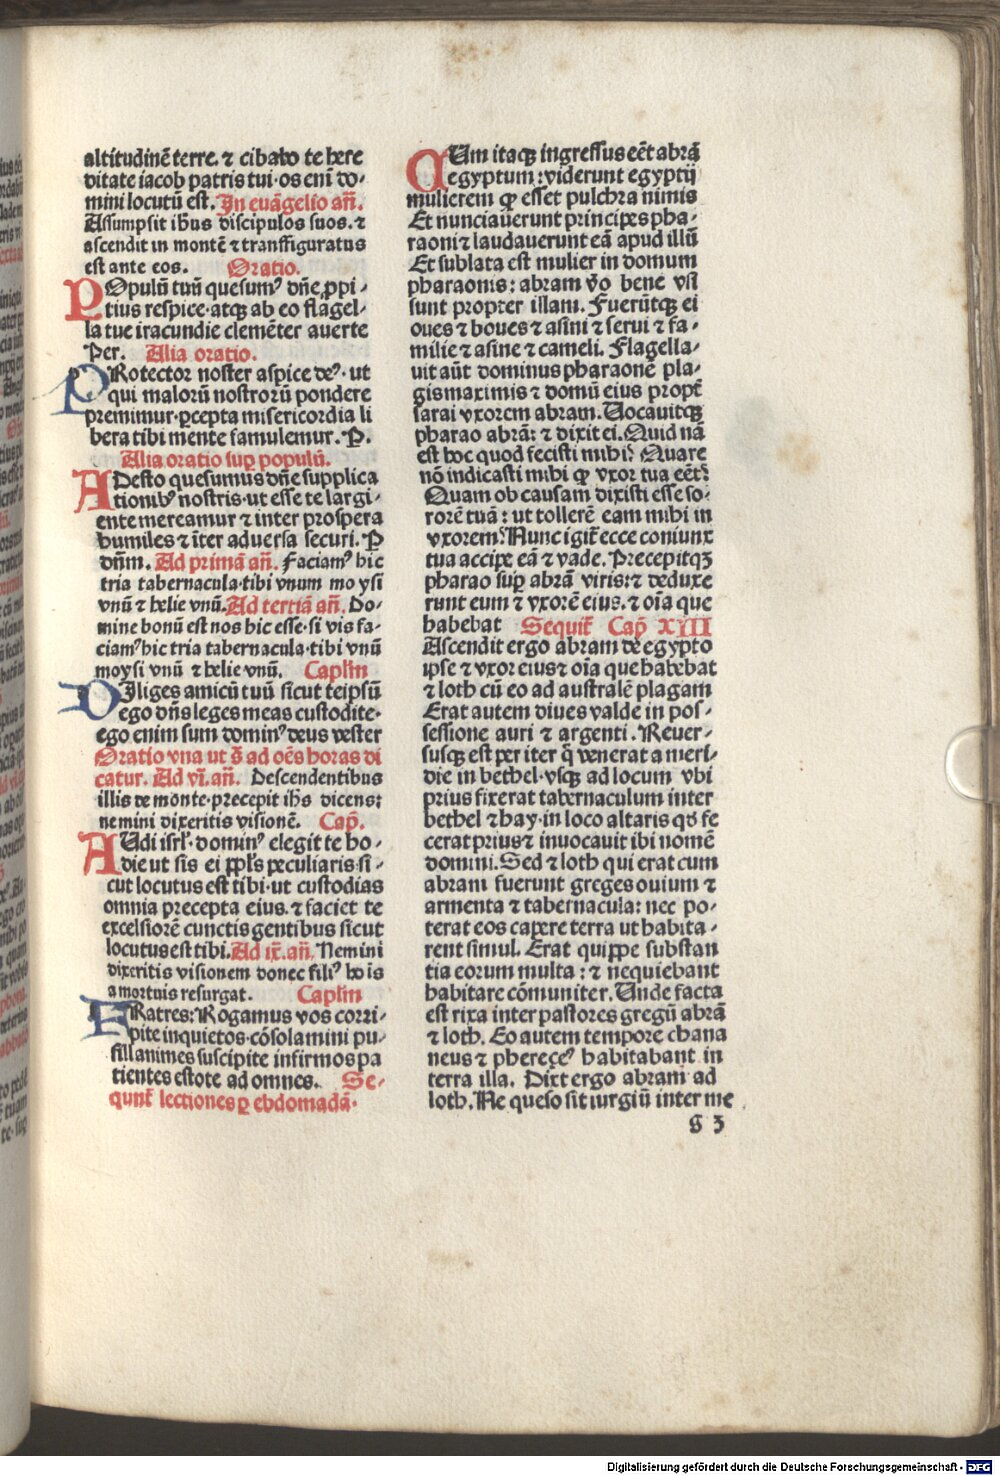 altitudinē terre. ⁊ cibabo te here
ditate iacob patris tui·os enī do-
mini locutū est. In euāgelio añ.
Assumpsit ihūs discipulos suos. ⁊
ascendit in montē ⁊ transfiguratus
est ante eos. Oratio.
POpulū tuū quesumꝰ dñe ꝓpi-
tius respice·atqꝫ ab eo flagel-
la tue iracundie clemēter auerte
Per. Alia oratio.
PRotector noster aspice deꝰ· ut
qui malorū nostrorū pondere
premimur·ꝑcepta misericordia li
bera tibi mente famulemur. P.
Alia oratio suꝑ populū.
ADesto quesumus dñe supplica
tionibꝰ nostris·ut esse te largi-
ente mereamur ⁊ inter prospera
humiles ⁊ īter aduersa securi. P
dñm. Ad primā añ. Faciamꝰ hic
tria tabernacula·tibi vnum moysi
vnū ⁊ helie vnū. Ad tertiā añ. Do-
mine bonū est nos hic esse·si vis fa-
ciamꝰ hic tria tabernacula·tibi vnū
moysi vnū ⁊ helie vnū. Caplm̄
DIliges amicū tuū sicut teipsū
ego dñs leges meas custodite·
ego enim sum dominꝰ deus vester
Oratio vna ut s̄ ad oēs horas di
catur. Ad vī. añ. Descendentibus
illis de monte·precepit ihs dicens:
nemini dixeritis visionē. Cap̄.
AUdi isrl̄· dominꝰ elegit te ho-
die ut sis ei ppl̄s peculiaris·si-
cut locutus est tibi·ut custodias
omnia precepta eius. ⁊ faciet te
excelsiorē cunctis gentibus sicut
locutus est tibi. Ad ix̄. añ. Nemini
dixeritis visionem donec filiꝰ hoīs
a mortuis resurgat. Caplm̄
FRatres: Rogamus vos corri-
pite inquietos·cōsolamini pu-
sillanimes suscipite infirmos pa
tientes estote ad omnes. Se-
qunt̄ lectiones ꝑ ebdomadā·
CUm itaqꝫ ingressus eēt abrā
egyptum: viderunt egyptij
mulierem ꝙ esset pulchra nimis
Et nunciauerunt principes pha-
raoni ⁊ laudauerunt eā apud illū
Et sublata est mulier in domum
pharaonis: abram v̄o bene vsi
sunt propter illam. Fuerūtqꝫ ei
oues ⁊ boues ⁊ asini ⁊ serui ⁊ fa-
milie ⁊ asine ⁊ cameli. Flagella-
uit aūt dominus pharaonē pla-
gis maximis ⁊ domū eius propt̄
sarai vxorem abram. Uocauitqꝫ
pharao abrā: ⁊ dixit ei. Quid nā
est hoc quod fecisti mihi? Quare
nō indicasti mihi ꝙ vxor tua eēt?
Quam ob causam dixisti esse so-
rorē tuā: ut tollerē eam mihi in
vxorem? Nunc igit̄ ecce coniunx
tua accipe eā ⁊ vade. Precepitqꝫ
pharao suꝑ abrā viris: ⁊ deduxe
runt eum ⁊ vxorē eius. ⁊ oīa que
habebat Sequit̄ Cap̄ XIII
Ascendit ergo abram de egypto
ipse ⁊ vxor eius ⁊ oīa que habebat
⁊ loth cū eo ad australē plagam
Erat autem diues valde in pos-
sessione auri ⁊ argenti. Reuer-
susqꝫ est per iter q̄ venerat a meri-
die in bethel·vsqꝫ ad locum vbi
prius fixerat tabernaculum inter
bethel ⁊ hay·in loco altaris qd̄ fe
cerat prius ⁊ inuocauit ibi nomē
domini. Sed ⁊ loth qui erat cum
abram fuerunt greges ouium ⁊
armenta ⁊ tabernacula: nec po-
terat eos capere terra ut habita-
rent simul. Erat quippe substan
tia eorum multa: ⁊ nequiebant
habitare cōmuniter. Unde facta
est rixa inter pastores gregū abrā
⁊ loth. Eo autem tempore chana
neus ⁊ pherezeꝰ habitabant in
terra illa. Dixt ergo abram ad
loth. Ne queso sit iurgiū inter me
g 3
Digitalisierung gefördert durch die Deutsche Forschungsgemeinschaft - DFG